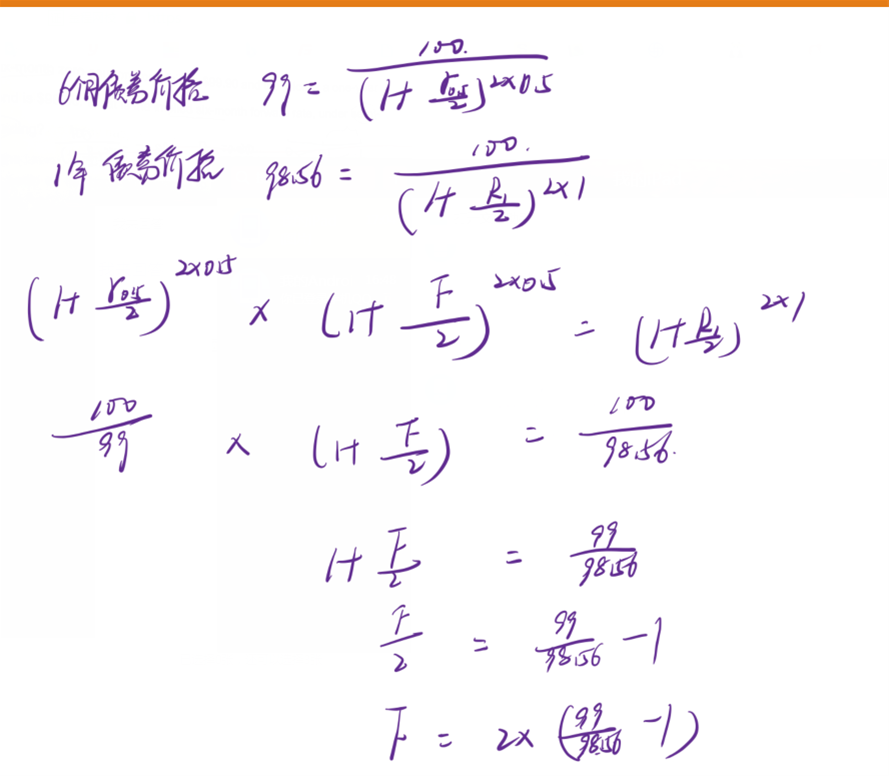 6个月债券价格 99 = 100. / (1+ r0.5/2)^2×0.5
1年 债券价格 98.56 = 100. / (1+ R1/2)^2×1
(1+ r0.5/2)^2×0.5 × (1+ F/2)^2×0.5 = (1+ R1/2)^2×1
100/99 × (1+ F/2) = 100/98.56.
1+ F/2 = 99/98.56
F/2 = 99/98.56 -1
F = 2× (99/98.56 -1)